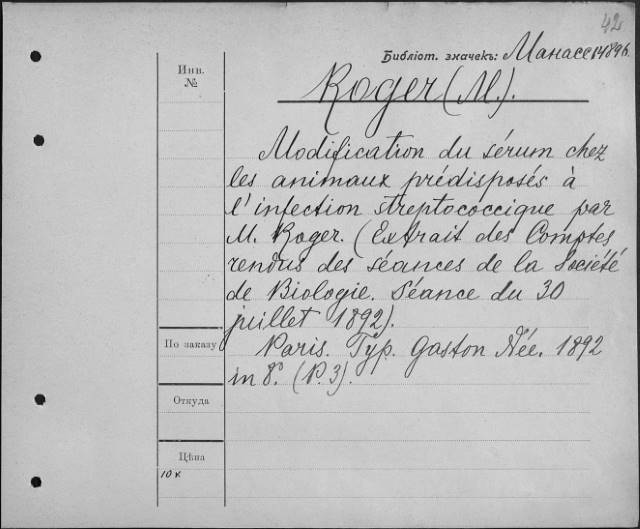 42
Библіот. значекъ: Манасеи 14896.
Инв.
№
Roger (M.).
Modification du sérum chez
les animaux prédisposés à
l'infection streptococcique par
M. Roger. (Extrait des Comptes
rendus des séances de la Société
de Biologie. Séance du 30
juillet 1892).
По заказу
Paris. Typ. Gaston Née. 1892
in 8°. (P. 3).
Откуда
Цѣна
10 к